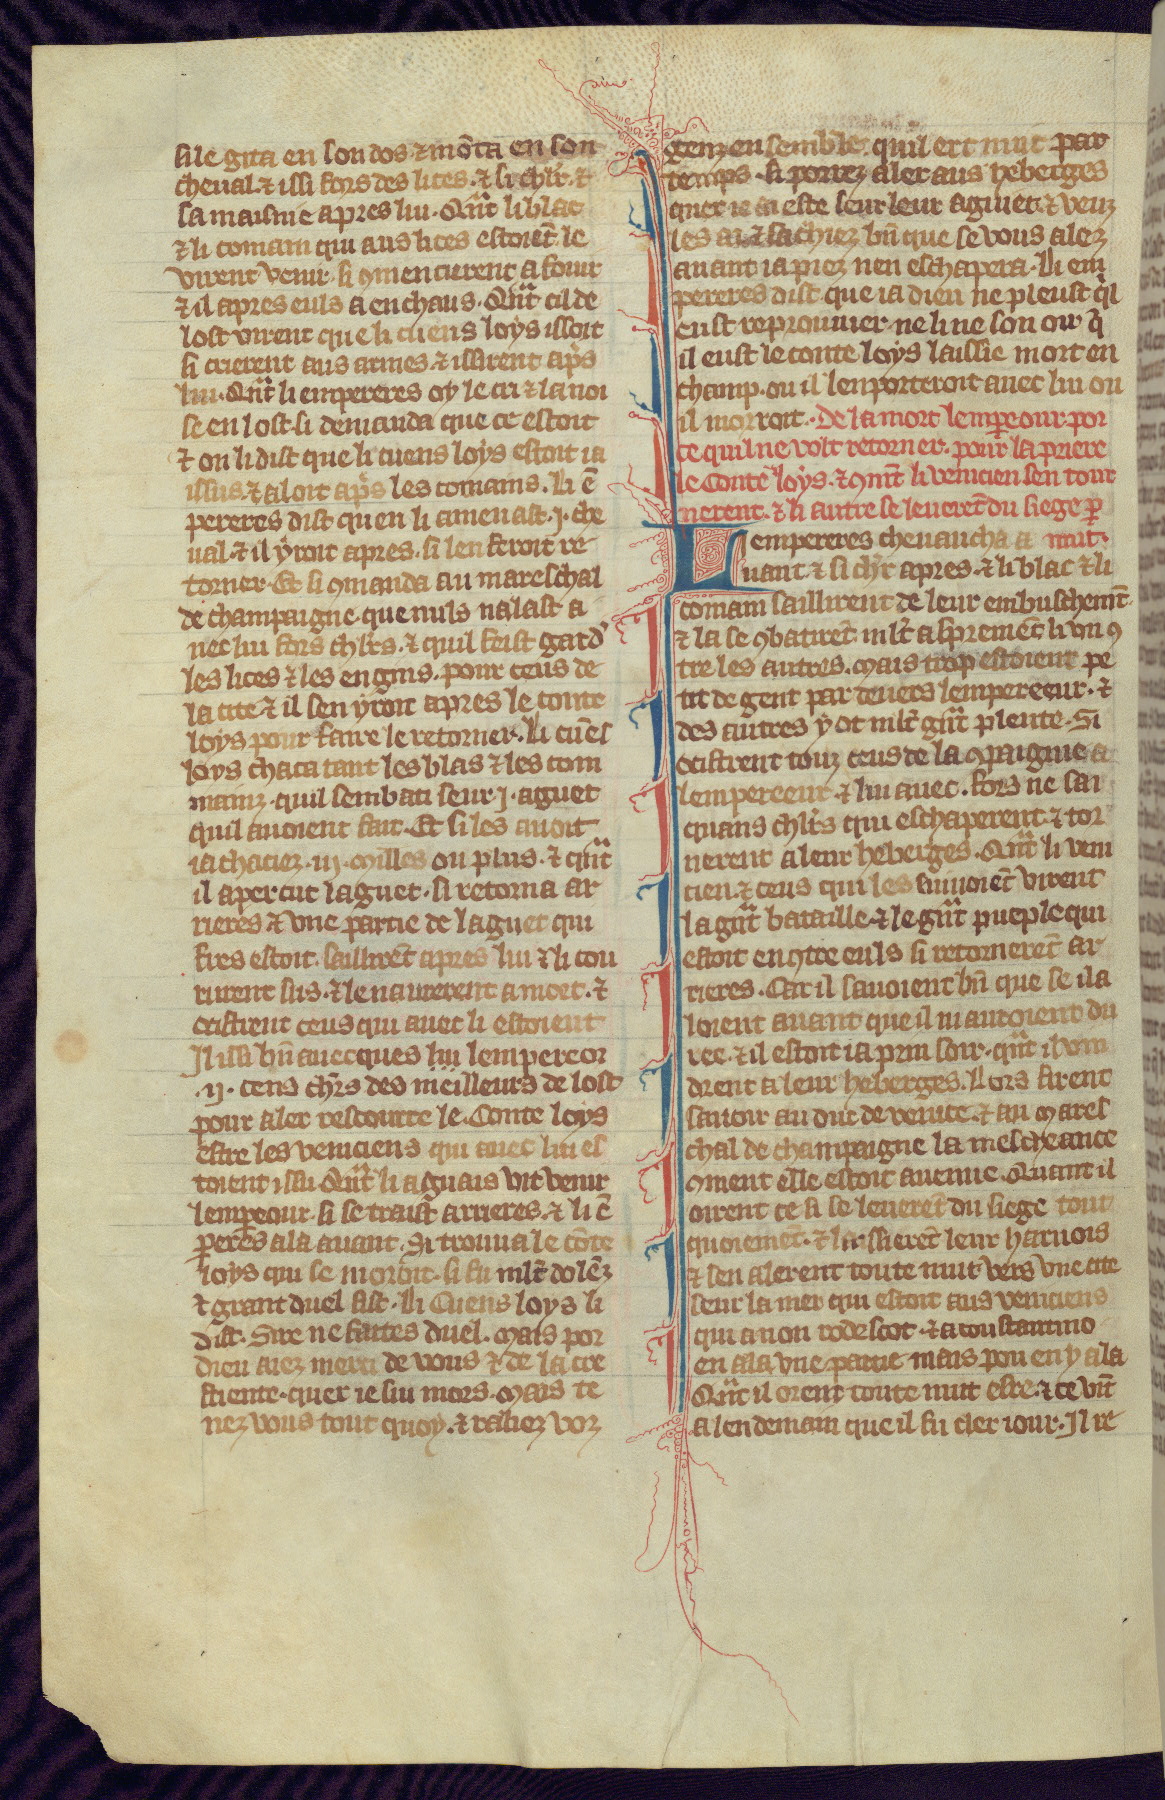 si le gita en son dos ⁊ mōta en son
cheual ⁊ issi fors des lices. ⁊ si chlr̄. ⁊
sa maisnie apres lui. Qn̄t li blac
⁊ li comain qui aus lices estoiēt le
virent venir. si ꝯmencierent a fouir
⁊ il apres euls a enchaus. Qn̄t cil de
lost virent que li cuens loys issoit
si crierent aus armes. ⁊ issirent apͥs
lui. Qn̄t li empereres oy le cri ⁊ la noi
se en lost. si demanda que ce estoit
⁊ on li dist que li cuens loys estoit ia
issus. ⁊ aloit apͥs les comains. Li ē
pereres dist quen li amenast .j. che
ual. ⁊ il yroit apres. si len feroit re
torner. Et si ꝯmanda au mareschal
de champaigne que nuls nalast a
uec lui fors chl̄rs. ⁊ quil feist gard'
les lices ⁊ les engins. pour ceus de
la cite ⁊ il sen yroit apres le conte
loys pour faire le retorner. Li cuēs
loys chaca tant les blas ⁊ les com
mainz. quil sembati seur .j. aguet
quil auoient fait. Et si les auoit
ia chaciez .iij. milles ou plus. ⁊ qn̄t
il apercut laguet. si retorna ar
rieres ⁊ vne partie de laguet qui
fres estoit. saillirēt apres lui ⁊ li cou
rurent sus. ⁊ le naurerent a mort. ⁊
occistrent ceus qui auec li estoient
Il issi bn̄ auecques lui lempereor
.ij. cens ch'rs des meilleurs de lost
pour aler rescourre le Conte loys
estre les veniciens qui auec lui es
toient issu. Qn̄t li aguais vit venir
lempeour. si se traist arrieres. ⁊ li ē
pereͬs ala auant. Si trouua le cōte
loys qui se moroit. si fu ml̄t dolēz
⁊ grant duel fist. Li Cuens loys li
dist. Sire ne faites duel. mais por
dieu aiez merci de vous ⁊ de la cre
stiente. quer ie sui mors. mais te
nez vous tout quoy. ⁊ raliez voz
genz ensemble. quil ert nuit par
temps. si porrez aler aus heberges
quer ie ai este seur leur aguiet. ⁊ veuz
les ai ⁊ sachiez bn̄ que se vous alez
auant ia piez nen eschapera. Li em
pereres dist que ia dieu ne pleust qͥl
eust reprouuier. ne li ne son oir qͣ
il eust le conte loys laissie mort en
champ. ou il lenporteroit auec lui ou
il morroit. De la mort lempeour por
ce quil ne volt retorner. pour la priere
le Conte loys. ⁊ ꝯmēt li venicien sen tour
nerent. ⁊ li autre se leuerēt du siege ꝑ
Lempereres cheuaucha a nuit.
uant ⁊ si ch'r apres. ⁊ li blac ⁊ li
comain saillirent de leur embuschemēt
⁊ la se ꝯbatirēt ml̄t asprement li vn ꝯ
tre les autres. mais trop estoient pe
tit de gent par deuers lempereeur. ⁊
des autres y ot ml̄t gn̄t plente. Si
occistrent touz ceus de la ꝯpaignie a
lempereeur. ⁊ lui auec. fors ne sai
quans chl̄rs qui eschaperent. ⁊ tor
nerent a leur heberges. Qn̄t li veni
cien. ⁊ ceus qui les suiuoiēt virent
la gn̄t bataille. ⁊ le gn̄t pueple qui
estoit enꝯtre euls si retornerēt ar
rieres. Car il sauoient bn̄ que se il a
loient auant que il ni auroient du
ree. ⁊ il estoit ia prin soir. qn̄t il vin
drent a leur heberges. Lors firent
sauoir au duc de venice. ⁊ au mares
chal de champaigne la mescheance
ꝯment elle estoit auenue. Quant il
oirent ce si se leuerēt du siege tout
quoiemēt. ⁊ laissierēt leur harnois
⁊ sen alerent toute nuit vers vne cite
seur la mer qui estoit aus veniciens
qui a non rodescot. ⁊ a coustantino
en ala vne partie mais pou en y ala
Qn̄t il orent toute nuit erre. ⁊ ce vīt
a lendemain que il fu cler iour. Il re